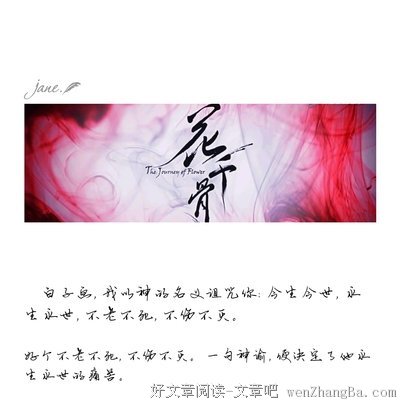 jane.
花千骨
The Journey of Flower
白子画,我以神的名义诅咒你:今生今世,永
生永世,不老不死,不伤不灭。
好个不老不死,不伤不灭。一句神谕,便决定了他永
生永世的痛苦。
好文章阅读-文章吧 wenZhangBa.com